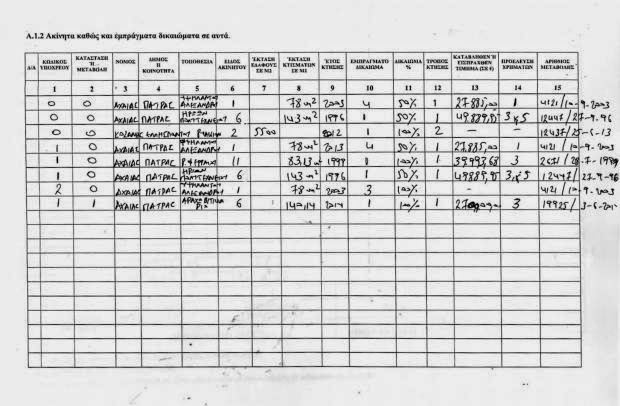 Α.1.2 Ακίνητα καθώς και εμπράγματα δικαιώματα σε αυτά.
Α/Α ΚΩΔΙΚΟΣ ΥΠΟΧΡΕΟΥ ΚΑΤΑΣΤΑΣΗ Ή ΜΕΤΑΒΟΛΗ ΝΟΜΟΣ ΔΗΜΟΣ Η ΚΟΙΝΟΤΗΤΑ ΤΟΠΟΘΕΣΙΑ ΕΙΔΟΣ ΑΚΙΝΗΤΟΥ ΈΚΤΑΣΗ ΕΔΑΦΟΥΣ ΣΕ Μ2 ΈΚΤΑΣΗ ΚΤΙΣΜΑΤΩΝ ΣΕ Μ2 ΈΤΟΣ ΚΤΗΣΗΣ ΕΜΠΡΑΓΜΑΤΟ ΔΙΚΑΙΩΜΑ ΔΙΚΑΙΩΜΑ % ΤΡΟΠΟΣ ΚΤΗΣΗΣ ΚΑΤΑΒΛΗΘΕΝ Ή ΕΙΣΠΡΑΧΘΕΝ ΤΙΜΗΜΑ (ΣΕ €) ΠΡΟΕΛΕΥΣΗ ΧΡΗΜΑΤΩΝ ΑΡΙΘΜΟΣ ΜΕΤΑΒΟΛΗΣ
1 2 3 4 5 6 7 8 9 10 11 12 13 14 15
0 0 ΑΧΑΙΑΣ ΠΑΤΡΑΣ 1 78 m² 2003 4 50% 1 27.885,00 1 4121/10-9-2003
0 0 ΑΧΑΙΑΣ ΠΑΤΡΑΣ 6 143 m² 1996 1 50% 1 49.889,95 3,4,5 12447/27-9-96
0 0 2 5500 2012 1 100% 2 — — 12437/25-6-13
1 0 ΑΧΑΙΑΣ ΠΑΤΡΑΣ 1 78 m² 2013 4 50% 1 27.885,00 1 4121/10-9-2003
1 0 ΑΧΑΙΑΣ ΠΑΤΡΑΣ 11 83,13 1999 1 100% 1 39.993,68 3 2671/28-7-1999
1 0 ΑΧΑΙΑΣ ΠΑΤΡΑΣ 6 143 m² 1996 1 50% 1 49889,95 3,4,5 12447/27-9-96
2 0 ΑΧΑΙΑΣ ΠΑΤΡΑΣ 1 78 m² 2003 3 100% — — 4121/10-9-2003
1 1 ΑΧΑΙΑΣ ΠΑΤΡΑΣ 6 140,14 1 100% 1 3 19925/